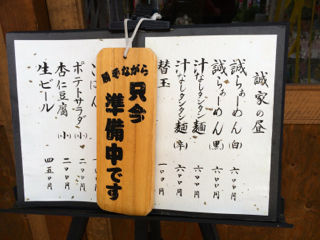 誠家の昼
誠らぁーめん(白) 六〇〇円
誠らぁーめん(黒) 六〇〇円
汁なしタンタン麺 六〇〇円
汁なしタンタン麺(辛) 六〇〇円
替玉 一〇〇円
勝手ながら
只今
準備中です
ごはん
ポテトサラダ(小) 二〇〇円
杏仁豆腐(小) 二〇〇円
生ビール 四五〇円